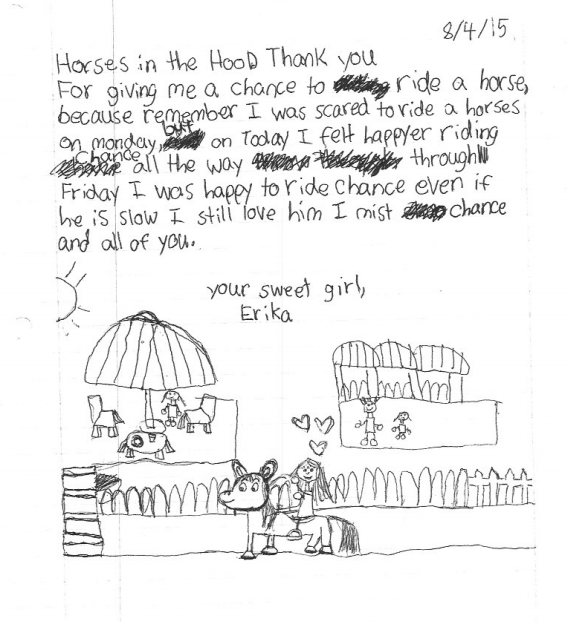 8/4/15
Horses in the HooD Thank you
For giving me a chance to ride a horse,
because remember I was scared to ride a horses
on monday, but on Today I felt happyer riding
chance all the way through
Friday I was happy to ride chance even if
he is slow I still love him I mist chance
and all of you.
your sweet girl,
Erika